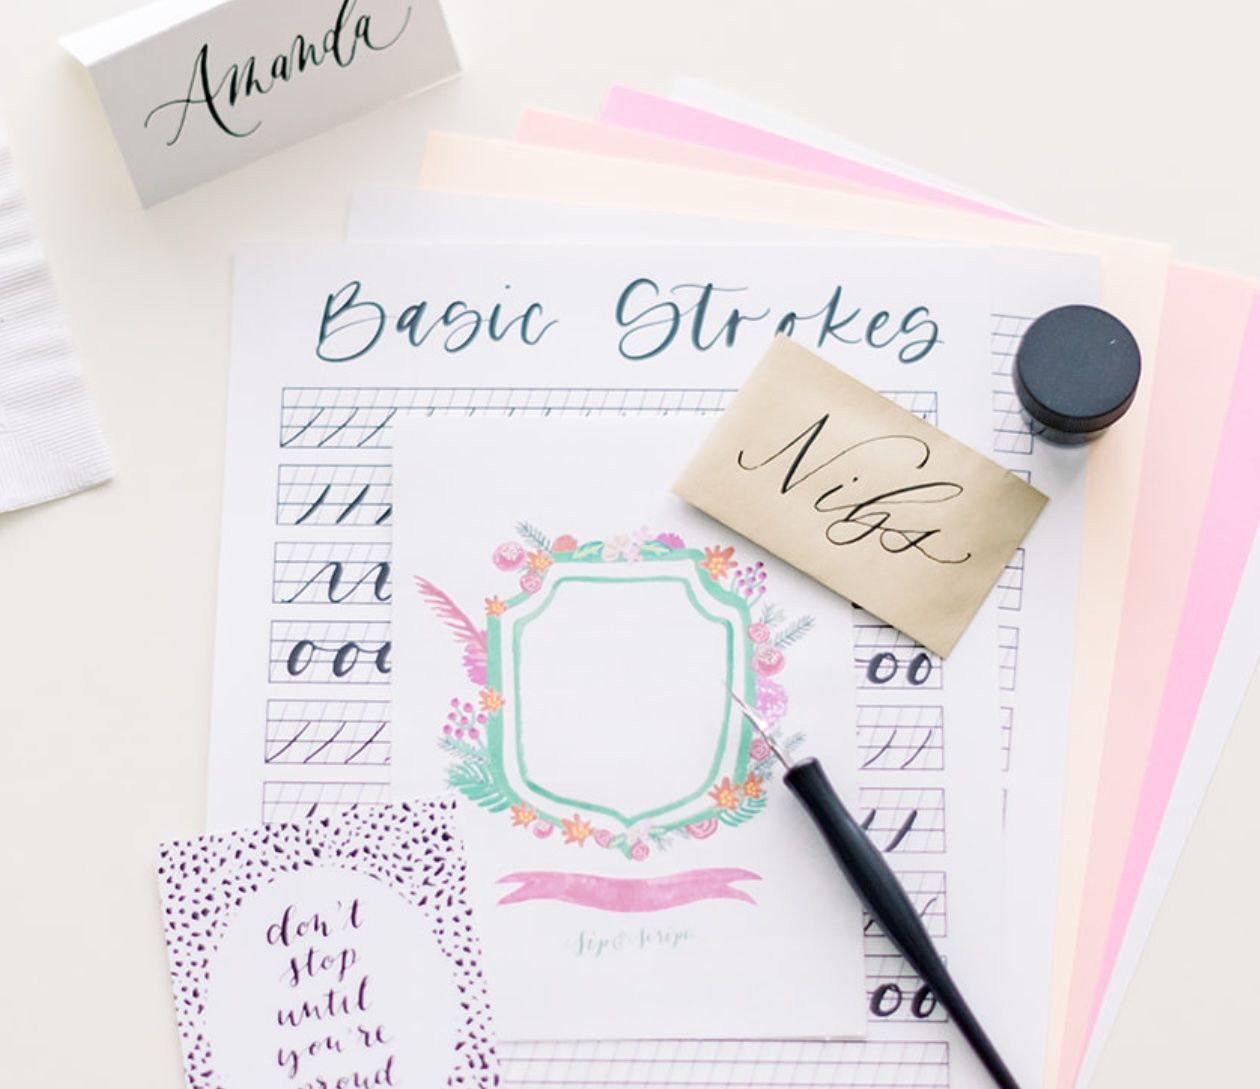 Amanda
Basic Strokes
Nibs
Sip & Script
don't
stop
until
you're
proud